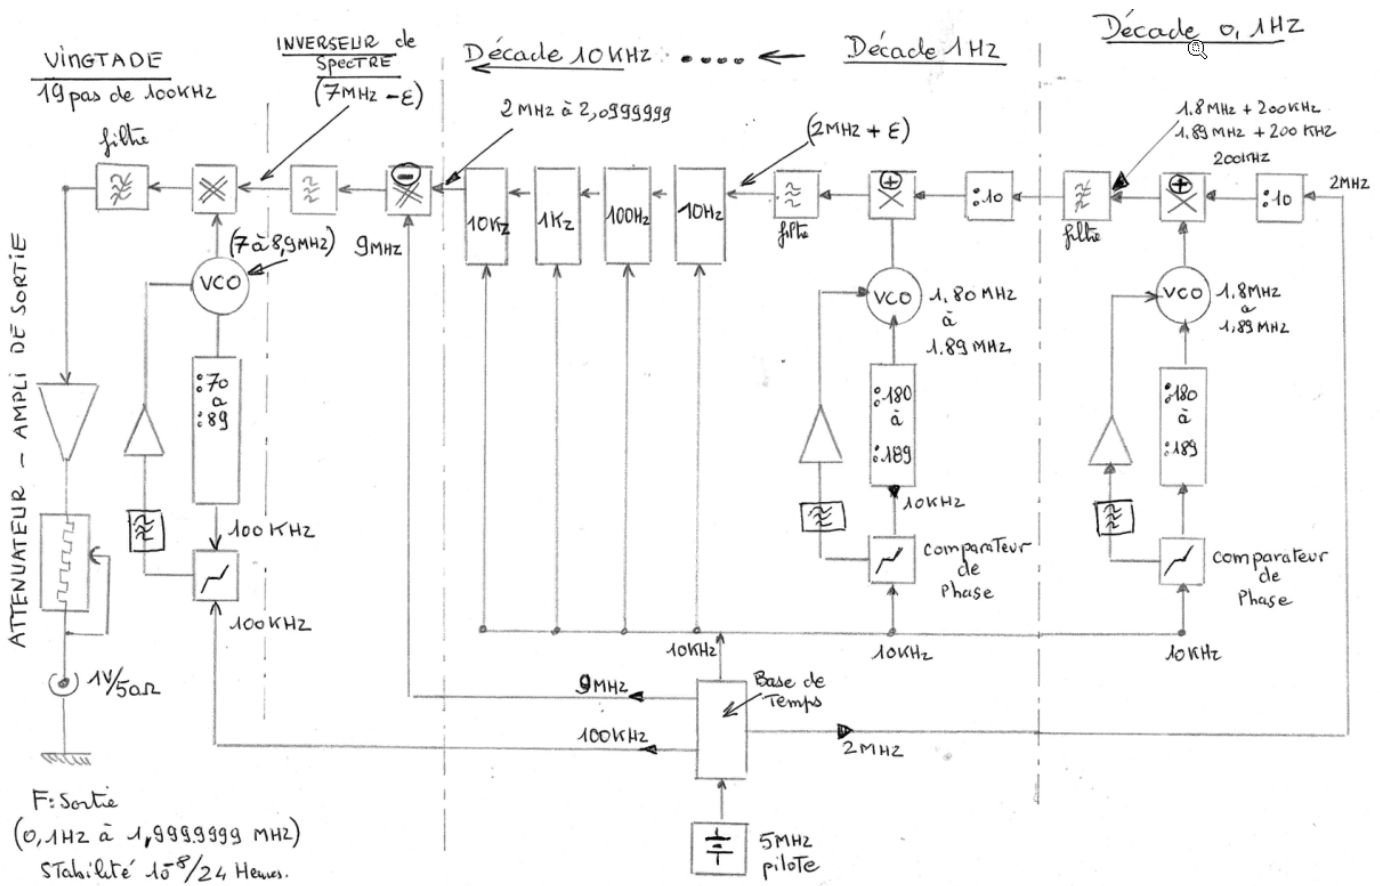 VINGTADE
19 pas de 100KHz
INVERSEUR de
SPECTRE
(7MHz - ε)
Décade 10KHz
Décade 1Hz
Décade 0,1Hz
filtre
2MHz à 2,0999999
(2MHz + ε)
1.8MHz + 200KHz
1.89MHz + 200KHz
200KHz
2MHz
:10
:10
10Kz
1Kz
100Hz
10Hz
filtre
filtre
-
+
+
(7 à 8,9MHz)
9MHz
VCO
VCO
VCO
1,80MHz
à
1.89MHz
1.8MHz
à
1,89MHz
:70
à
:89
:180
à
:189
:180
à
:189
ATTENUATEUR - AMPLI DE SORTIE
100KHz
10KHz
comparateur
de
Phase
comparateur
de
Phase
100KHz
10KHz
10KHz
10KHz
1V/50Ω
9MHz
Base de
Temps
100KHz
2MHz
F: Sortie
(0,1Hz à 1,9999999 MHz)
Stabilité 10-8/24 Heures.
5MHz
pilote